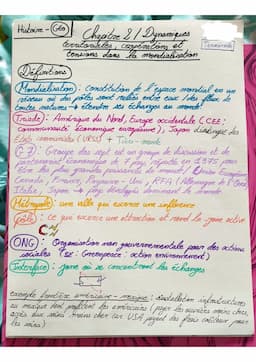 Histoire - Géo
Chapitre 2 / Dynamiques
territoriales, coopérations et
tensions dans la mondialisation
Terminale
Définitions
Mondialisation : constitution de l'espace mondial en un
réseau où des pôles sont reliés entre eux / des flux de
toutes natures → étendre ses échanges au monde
Triade : Amérique du Nord, Europe occidentale (CEE :
communauté économique européenne), Japon
États communistes (URSS) + Tiers-monde
G7 : Groupe des sept est un groupe de discussion et de
partenariat économique de 7 pays réputés en 1975 pour
être les plus grandes puissances du monde / États Unis
Canada, France, Royaume-Uni, RFA (Allemagne de l'Ouest),
Italie, Japon → pays développés dominant le monde
Métropole : une ville qui exerce une influence
Pôle : ce qui exerce une attraction et rend la zone active
ONG : Organisation non gouvernementale pour des actions
sociales (ex : Greenpeace : action environnement)
Interface : zone où se concentrent les échanges
exemple frontière américaine - mexique : installation infrastructures
au mexique dont profitent les américains (payer les ouvriers moins chers,
car USA payent des frais